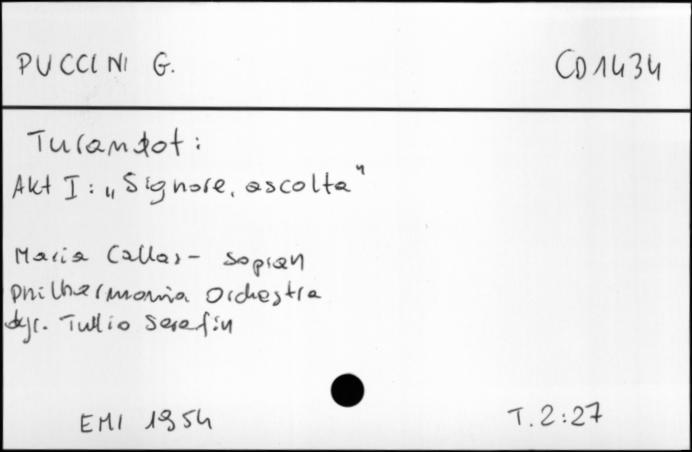 PUCCINI G. CD1434
Turandot:
Akt I: „Signore, ascolta"
Maria Callas - sopran
Philharmonia Orchestra
dyr. Tullio Serafin
EMI 1954 T. 2:27